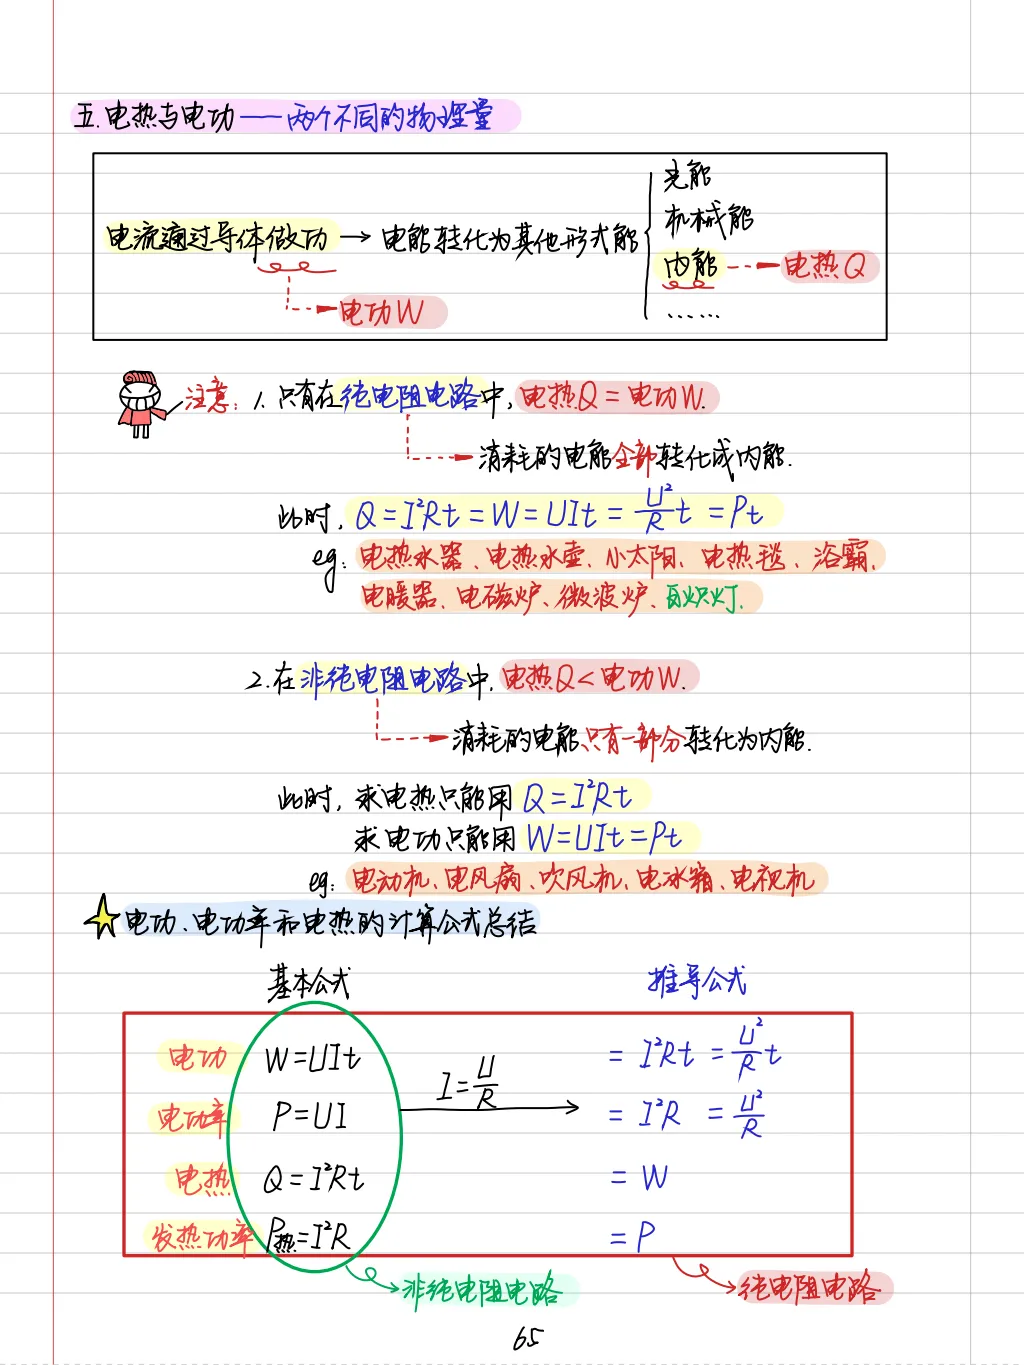 五.电热与电功——两个不同的物理量
电流通过导体做功→电能转化为其他形式能
光能
机械能
内能 → 电热Q
……
电功W
注意:1.只有在纯电阻电路中,电热Q=电功W.
消耗的电能全部转化成内能.
此时,Q=I²Rt=W=UIt=U²/R t=Pt
eg:电热水器、电热水壶、小太阳、电热毯、浴霸、
电暖器、电磁炉、微波炉、白炽灯.
2.在非纯电阻电路中,电热Q<电功W.
消耗的电能只有一部分转化为内能.
此时,求电热只能用Q=I²Rt
求电功只能用W=UIt=Pt
eg:电动机、电风扇、吹风机、电冰箱、电视机
电功、电功率和电热的计算公式总结
基本公式 推导公式
电功 W=UIt I=U/R =I²Rt=U²/R t
电功率 P=UI =I²R =U²/R
电热 Q=I²Rt =W
发热功率 P热=I²R =P
非纯电阻电路 纯电阻电路
65